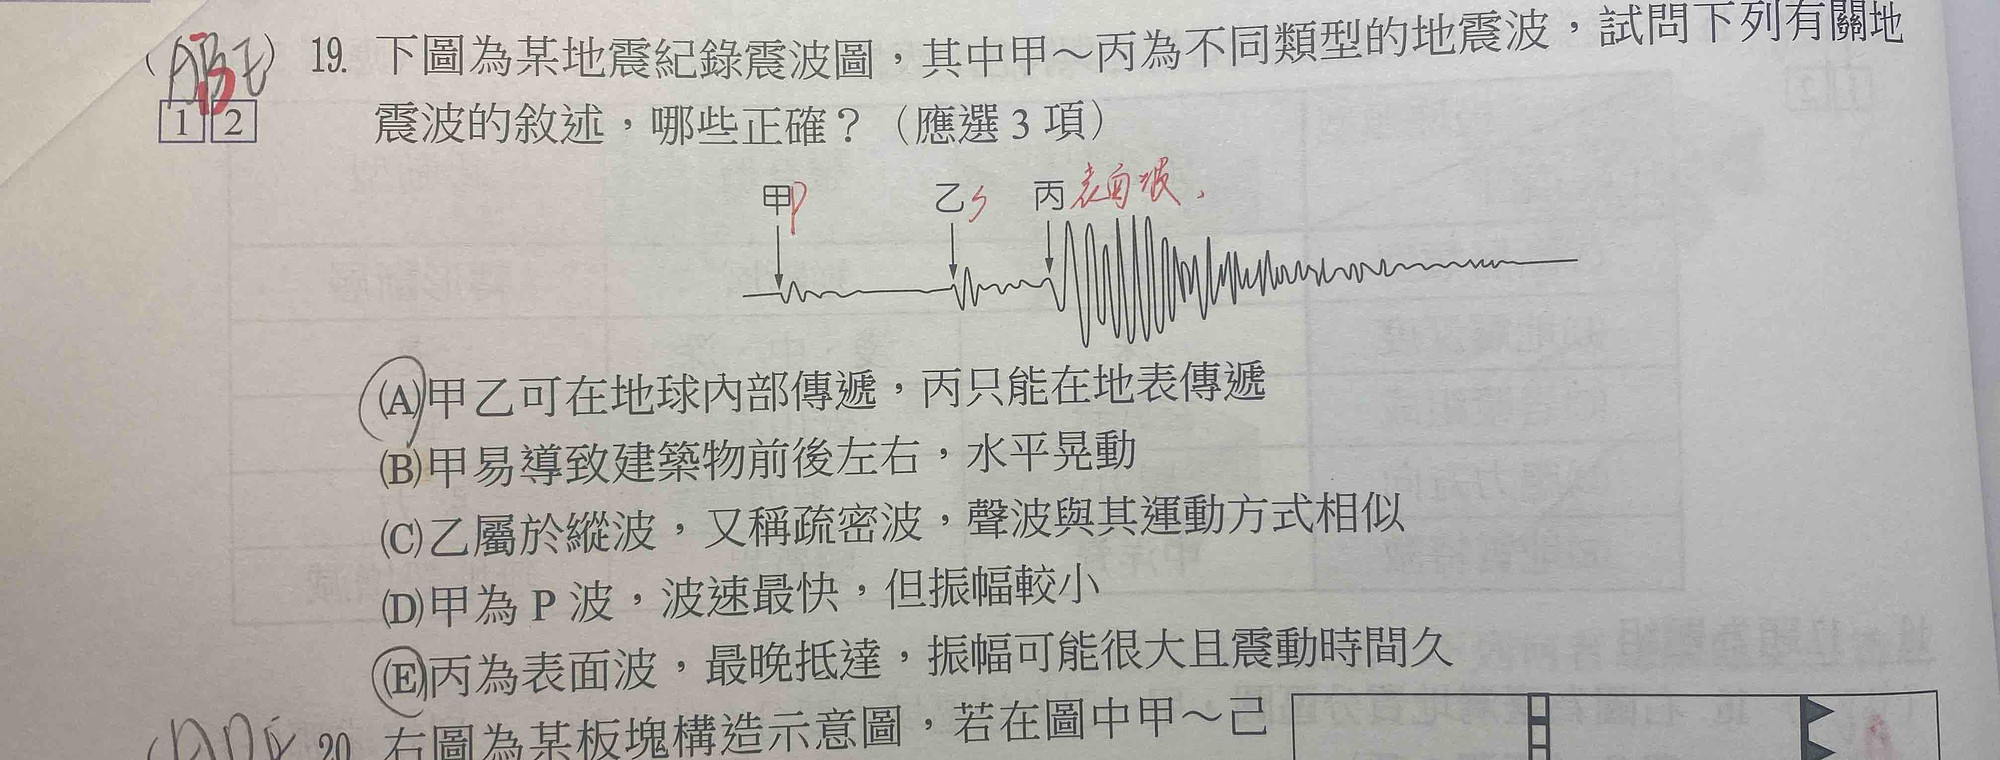 19. 下圖為某地震紀錄震波圖，其中甲～丙為不同類型的地震波，試問下列有關地
震波的敘述，哪些正確？（應選 3 項）
1 2
甲P 乙S 丙表面波
(A)甲乙可在地球內部傳遞，丙只能在地表傳遞
(B)甲易導致建築物前後左右，水平晃動
(C)乙屬於縱波，又稱疏密波，聲波與其運動方式相似
(D)甲為 P 波，波速最快，但振幅較小
(E)丙為表面波，最晚抵達，振幅可能很大且震動時間久
20. 右圖為某板塊構造示意圖，若在圖中甲～己